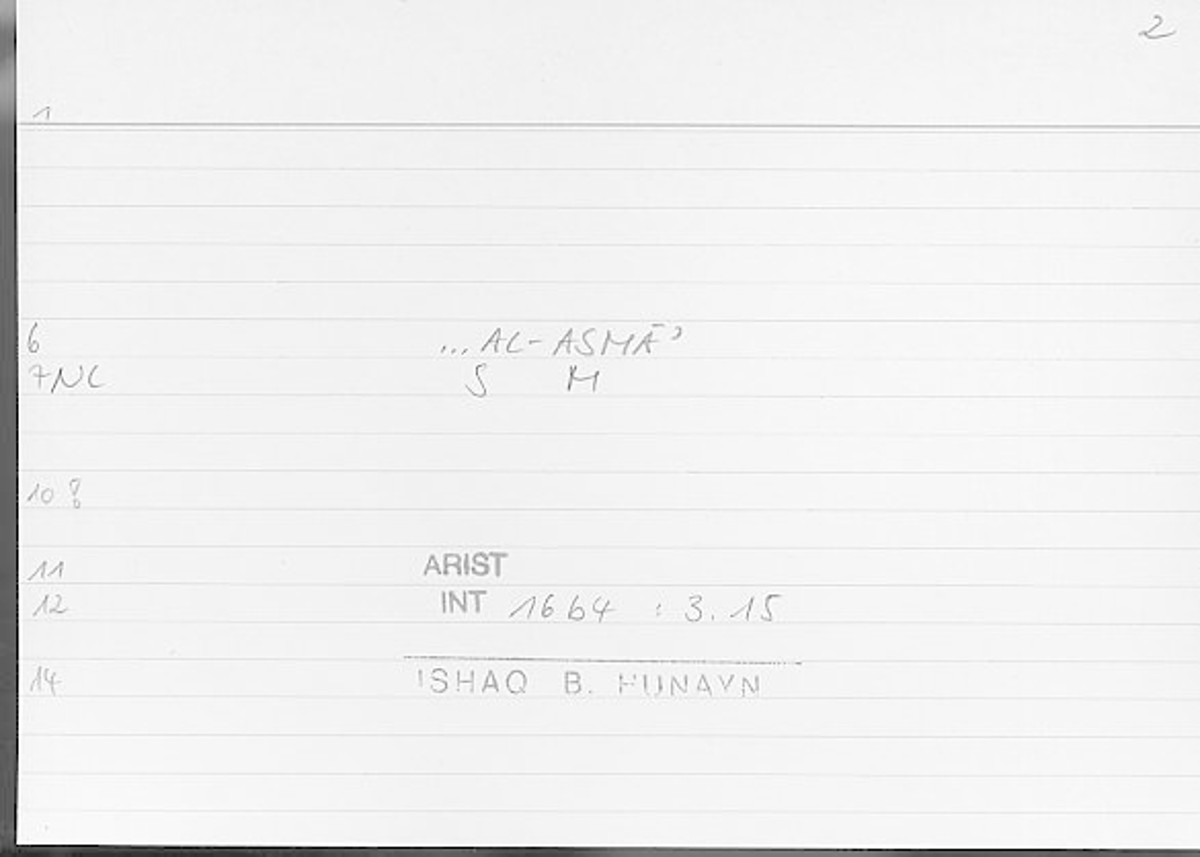 2
1
6 ... AL-ASMĀʾ
7NL S M
10 8
11 ARIST
12 INT 16b4 : 3.15
14 ISHAQ B. HUNAYN